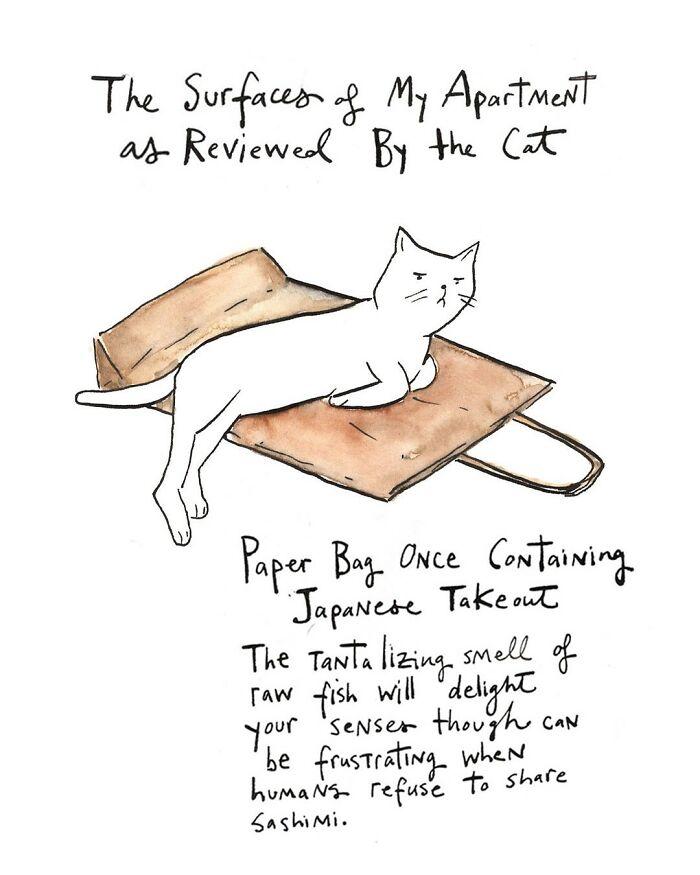 The Surfaces of My Apartment
as Reviewed By the Cat
Paper Bag Once Containing
Japanese Takeout
The Tantalizing smell of
raw fish will delight
your senses though can
be frustrating when
humans refuse to share
Sashimi.